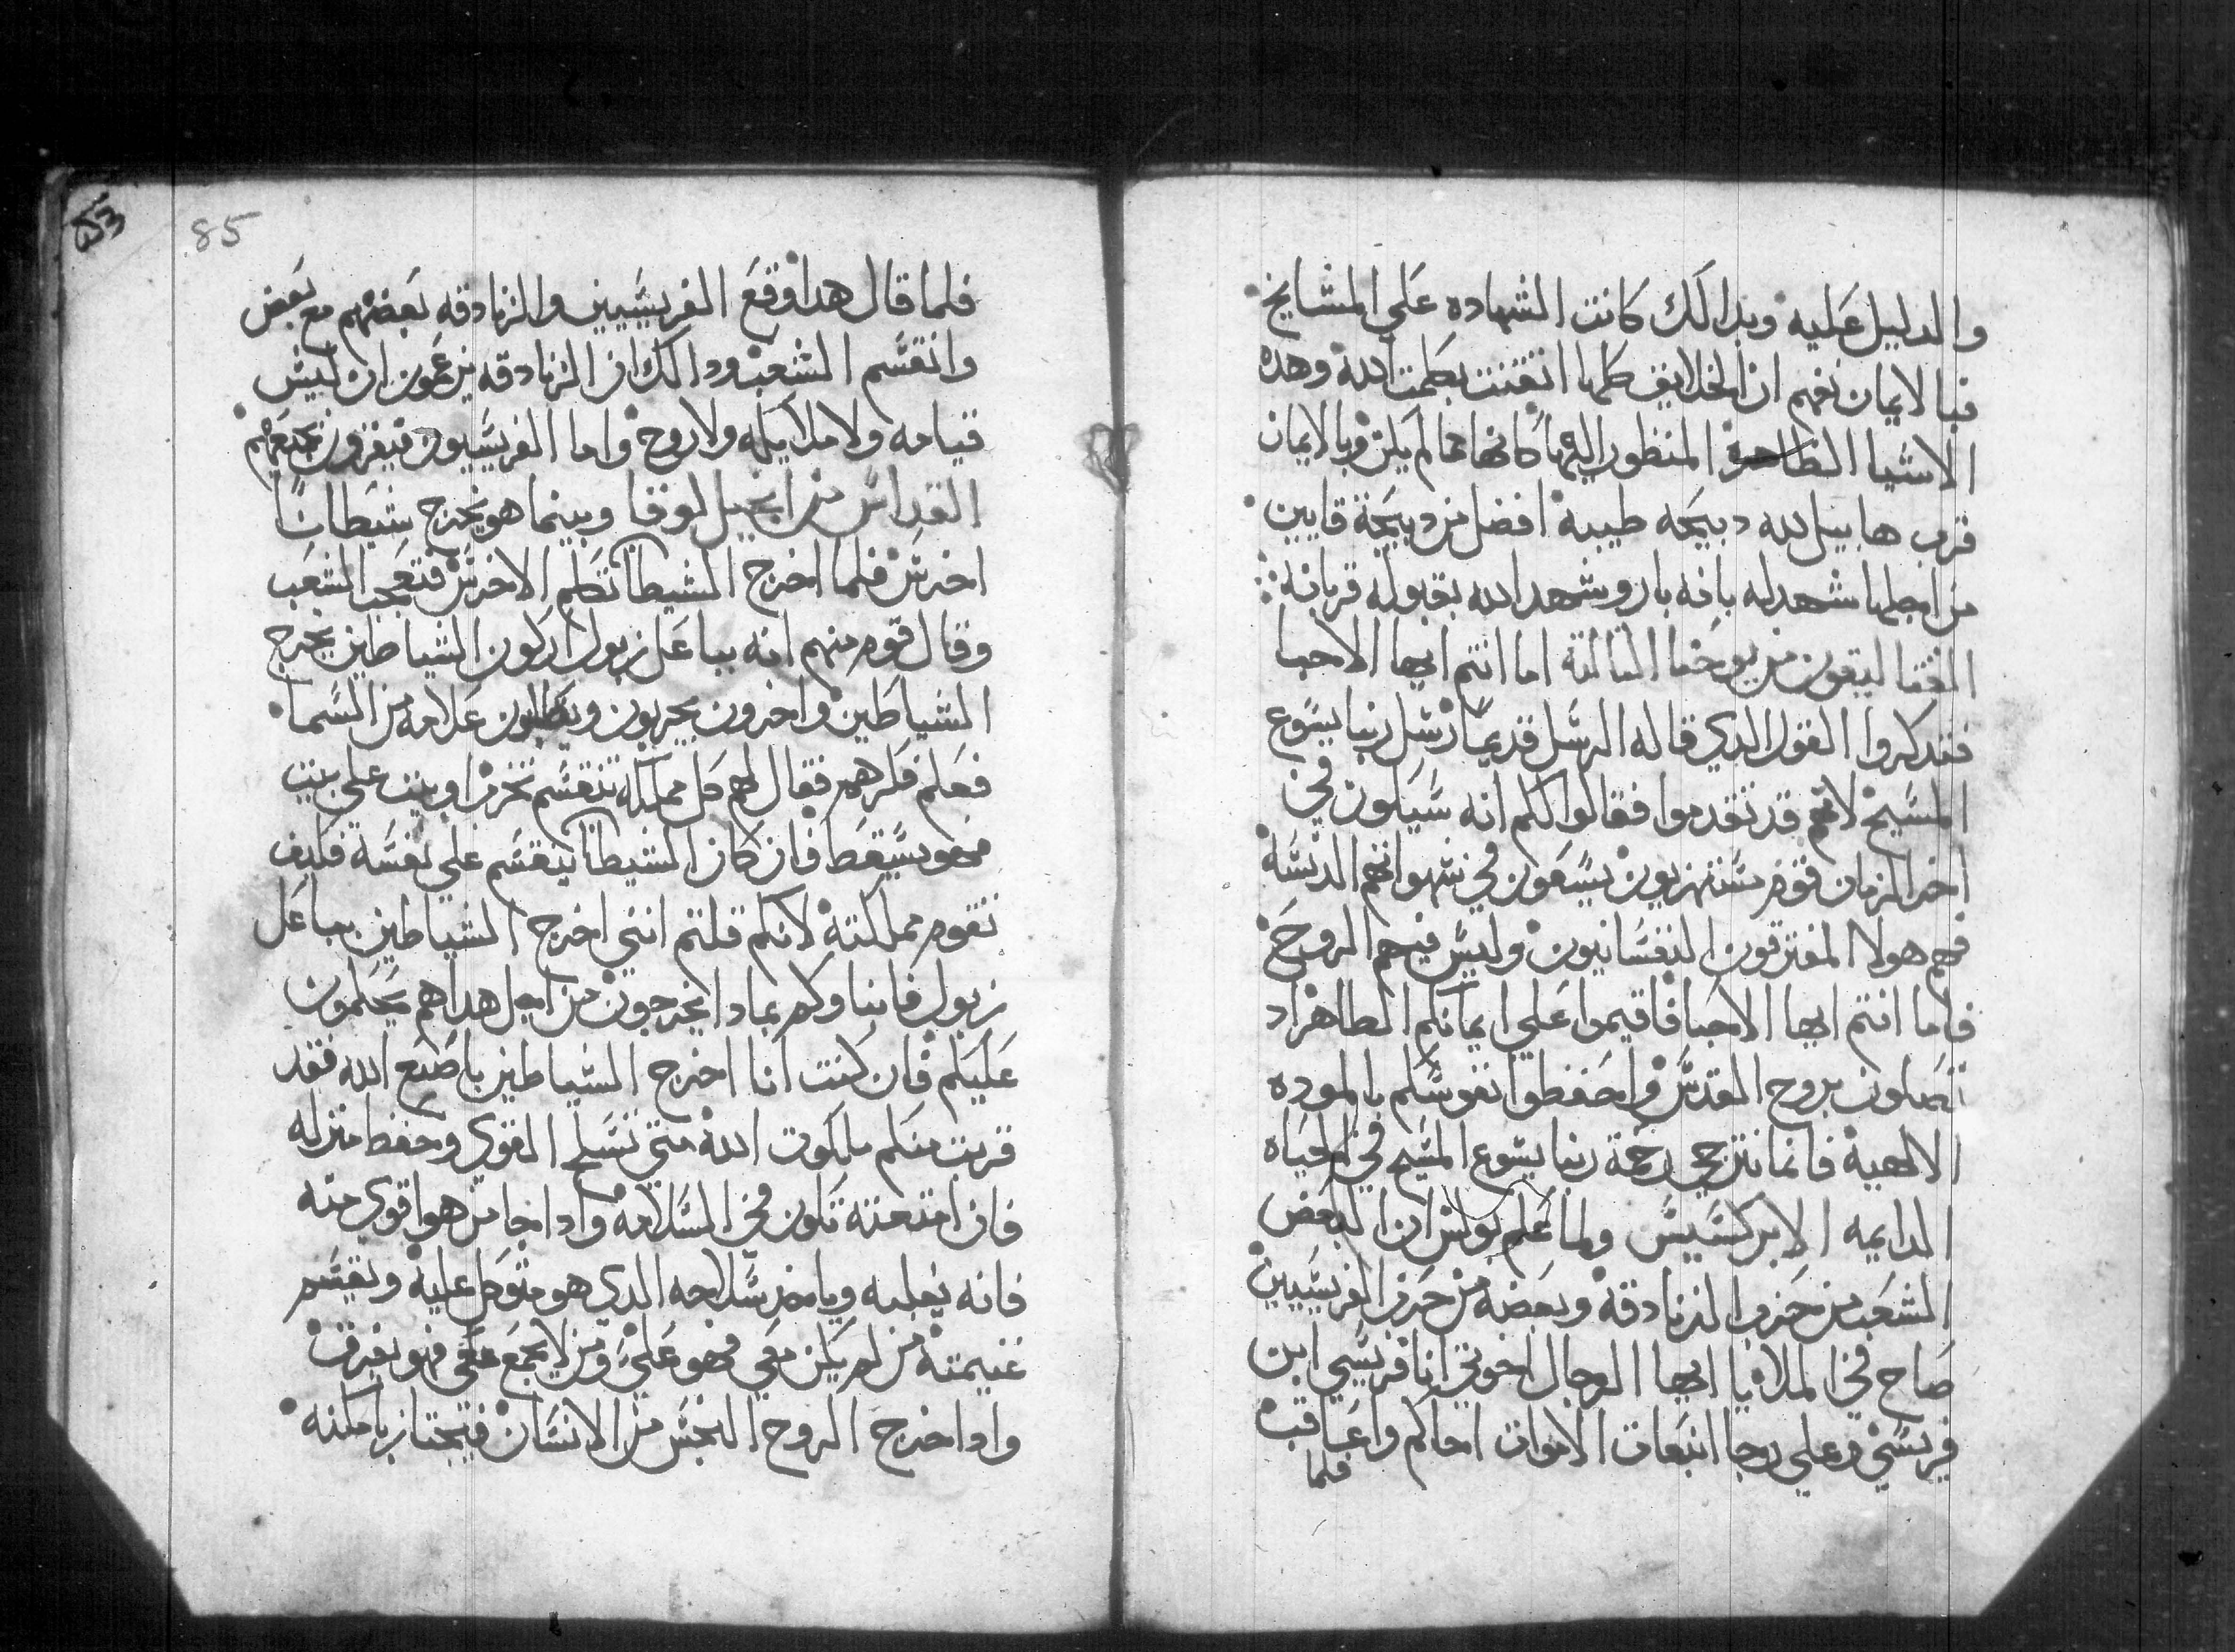 والدليل عليه وبدالك كانت الشهاده علي المشايخ
فبالايمان نفهم ان الخلايق كلها اتقنت بكلمت الله وهده
الاشيا الظاهرة المنظور اليها كانها مما لم يكن وبالايمان
قرب هابيل لله دبيحه طيبة افضل من دبيحة قايين
من اجلها شهد له بانه بار وشهد الله بقبوله قربانه
القتاليقون من يوحنا التالتة اما انتم ايها الاحبا
فتدكروا القول الدي قاله الرسل قديما رسل ربنا يسوع
المسيح لانهم قد تقدموا فقالوا لكم انه سيكون في
اخر الزمان قوم مستهزيون يسعون في شهواتهم الدنسة
فهم هولا المفترقون النفسانيون وليس فيهم الروح
فاما انتم ايها الاحبا فاقيموا علي ايمانكم الطاهر اد
تصلون بروح القدس واحفظوا نفوسكم بالموده
الالهية فانما نترجي رحمة ربنا يسوع المسيح في الحياه
الدايمه الابركسيس ولما علم بولس ان البعض
الشعب من حزب الزنادقة وبعضه من حزب الفريسيين
صاح في الملا يا ايها الرجال اخوتي انا فريسي ابن
فريسي وعلي رجا انبعات الاموات احاكم واعاقب
فلما
85
فلما قال هدا وقع الفريسيين والزنادقه بعضهم مع بعض
وانقسم الشعب ودالك ان الزنادقه يزعمون ان ليس
قيامه ولا ملايكه ولا روح واما الفريسيون فيقرون بجميعهم
القداس من انجيل لوقا وبينما هو يخرج شيطانا
اخرس فلما اخرج الشيطان تكلم الاخرس فتعجب الشعب
وقال قوم منهم انه بباعل زبول اركون الشياطين يخرج
الشياطين واخرون يجربون ويطلبون علامه من السما
فعلم فكرهم فقال لهم كل مملكه تنقسم تخرب وبيت علي بيت
فهو يسقط فان كان الشيطان ينقسم علي نفسة فكيف
تقوم مملكتة لانكم قلتم انني اخرج الشياطين بباعل
زبول فابناوكم بمادا يخرجون من اجل هدا هم يحكمون
عليكم فان كنت انا اخرج الشياطين باصبع الله فقد
قربت منكم ملكوت الله متي تسلح القوي وحفظ منزله
فان امتعته تكون في السلامه وادا جا من هو اقوي منه
فانه يغلبه وياخد سلاحه الدي هو متوكل عليه ويقسم
غنيمتة من لم يكن معي فهو علي ومن لا يجمع معي فهو يفرق
وادا خرج الروح النجس من الانسان فيجتاز بامكنه